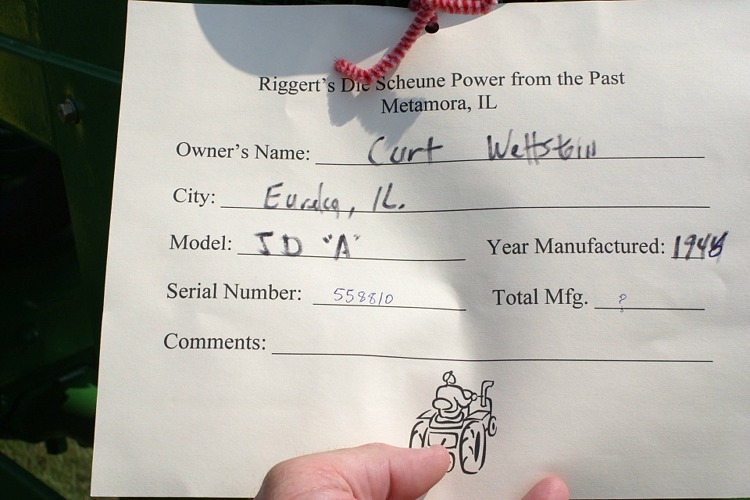 Riggert's Die Scheune Power from the Past
Metamora, IL
Owner's Name: Curt Wettstein
City: Eureka, IL.
Model: JD "A" Year Manufactured:
Serial Number: 558810 Total Mfg. ?
Comments: